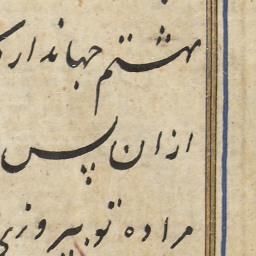 بهشتم جهاندار
ازان پس
مراده تو پیروزی